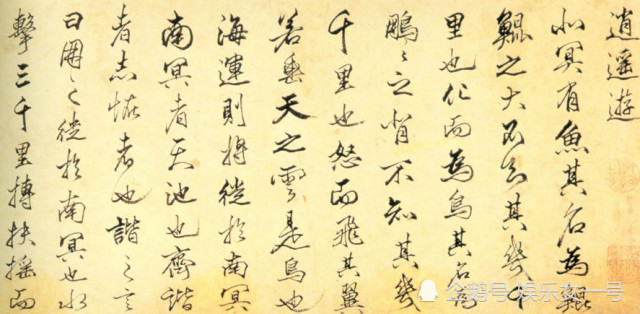 逍遥遊
北冥有魚其名為鯤
鯤之大不知其幾千
里也化而為鳥其名為
鵬鵬之背不知其幾
千里也怒而飛其翼
若垂天之雲是鳥也
海運則將徙於南冥
南冥者天池也齊諧
者志怪者也諧之言
曰鵬之徙於南冥也水
擊三千里摶扶搖而
企鹅号 娱乐女一号